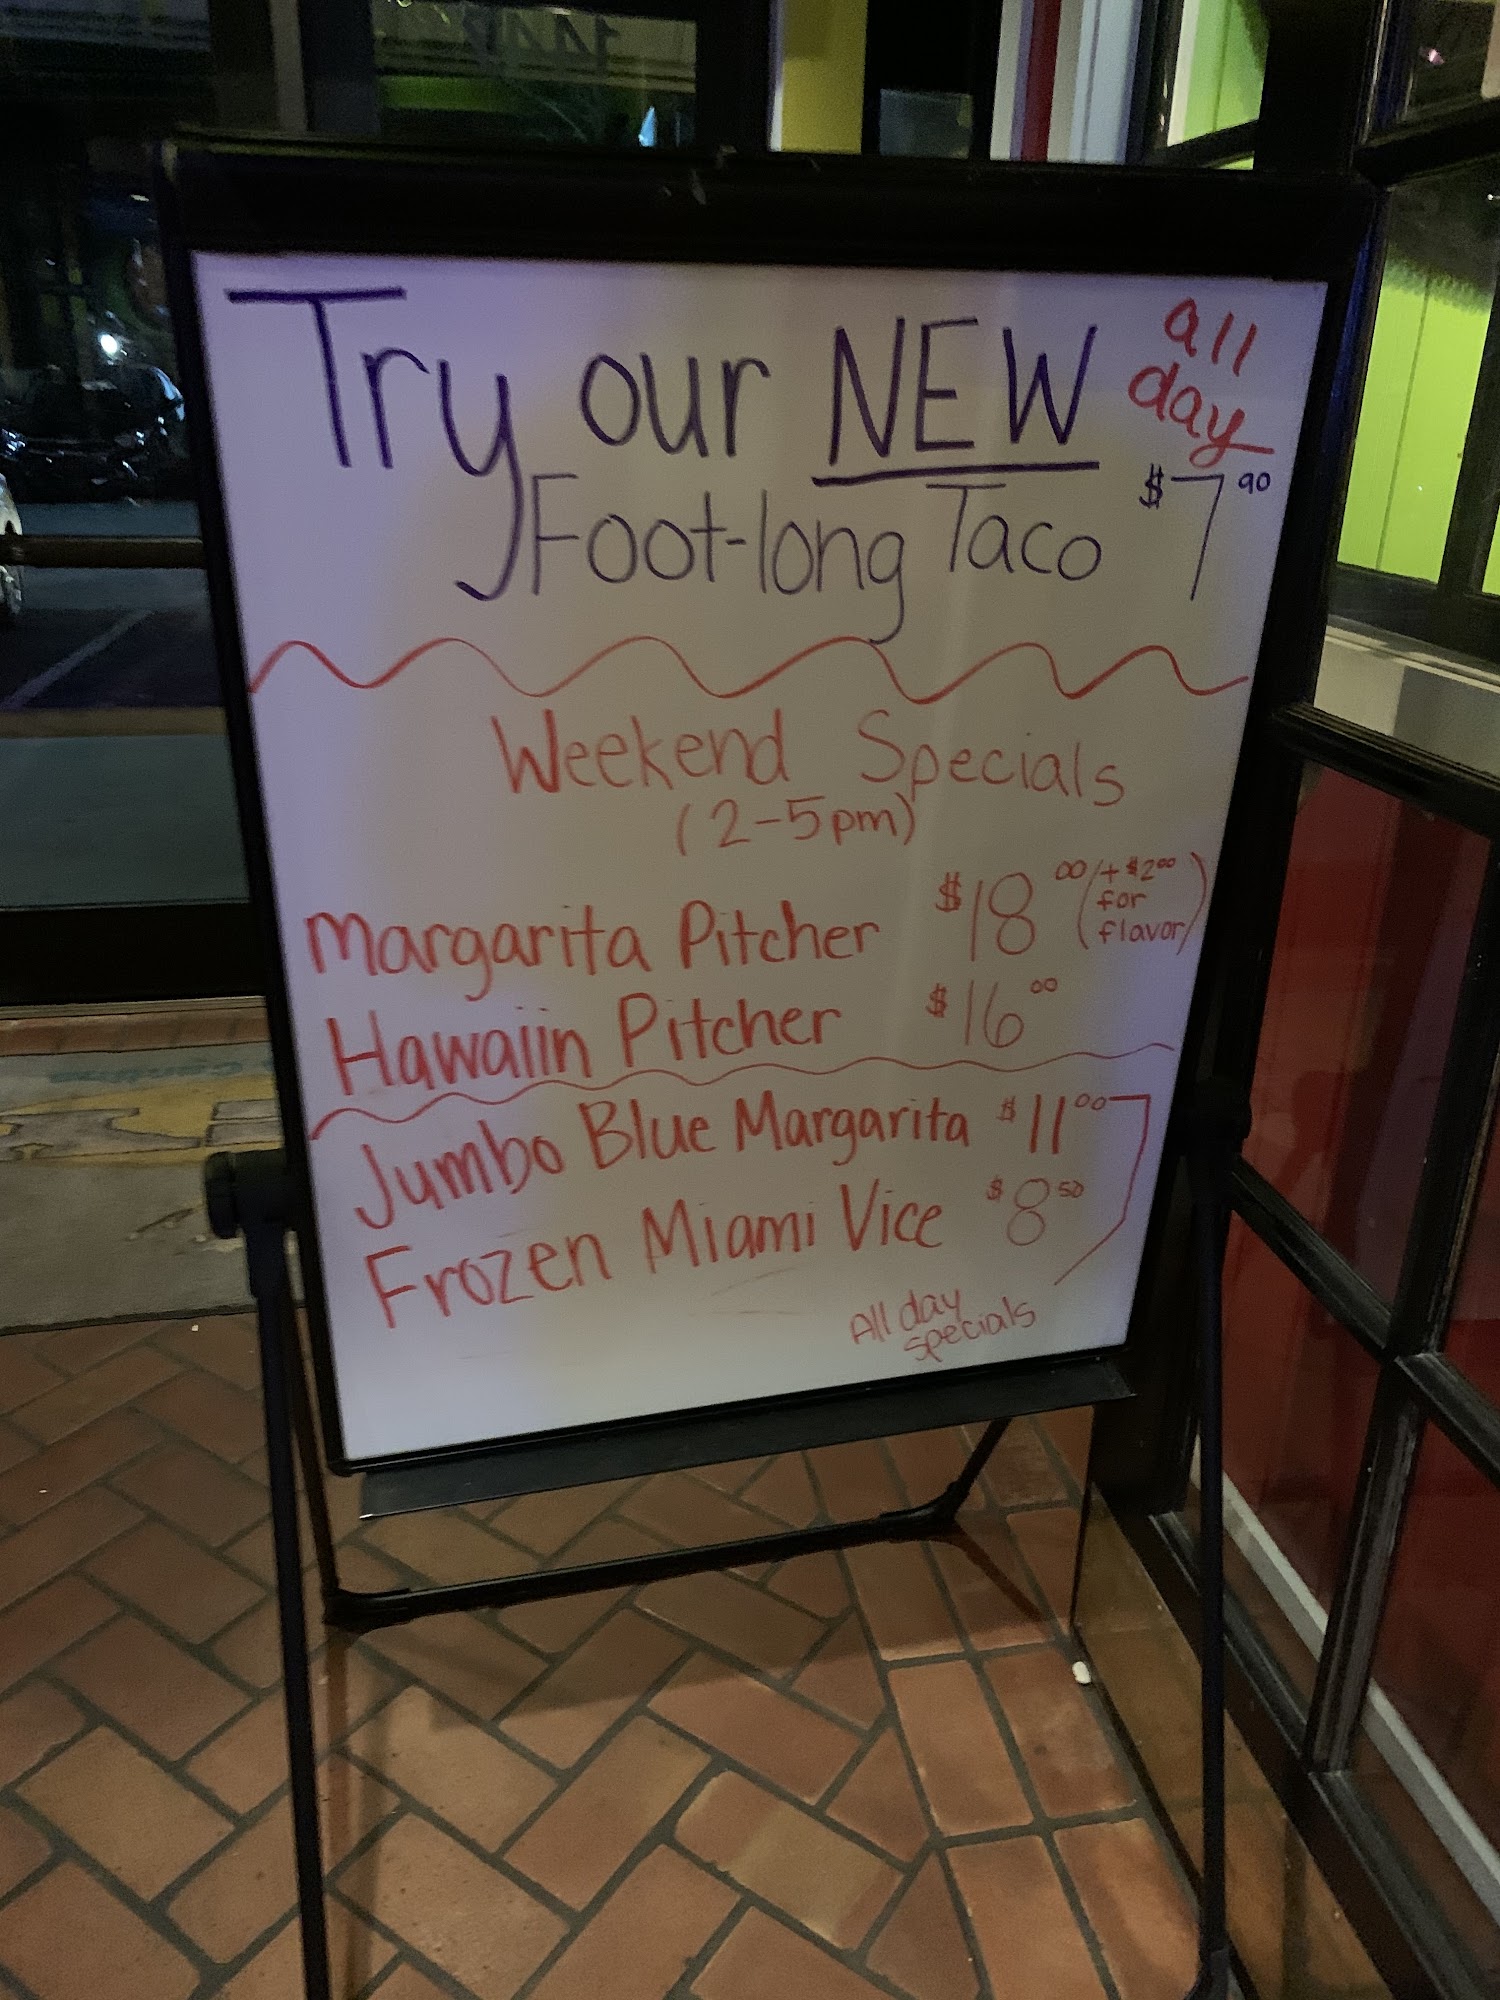 Try our NEW
all
day
Foot-long Taco $7 90
Weekend Specials
(2-5pm)
Margarita Pitcher $18 00 (+ $2 00
for
flavor)
Hawaiin Pitcher $16 00
Jumbo Blue Margarita $11 00
Frozen Miami Vice $8 50
All day
specials